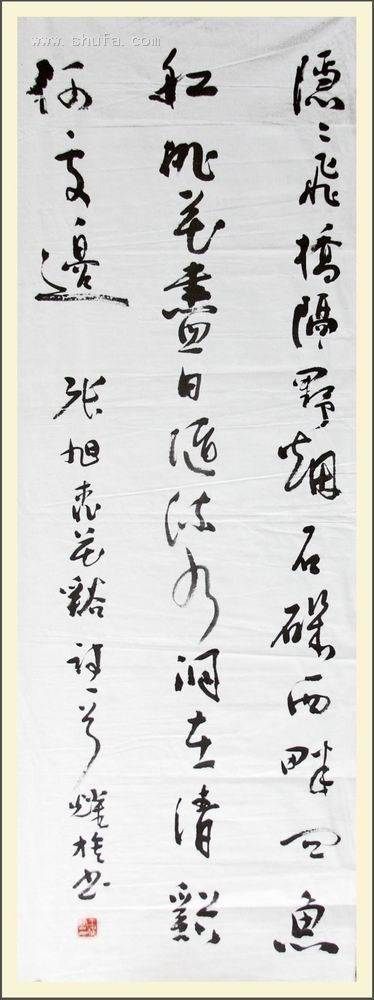 www.shufa.com
隱〻飛橋隔野烟石磯西畔问魚
船桃花盡日隨流水洞在清谿
何處邊
張旭桃花谿詩一首 書